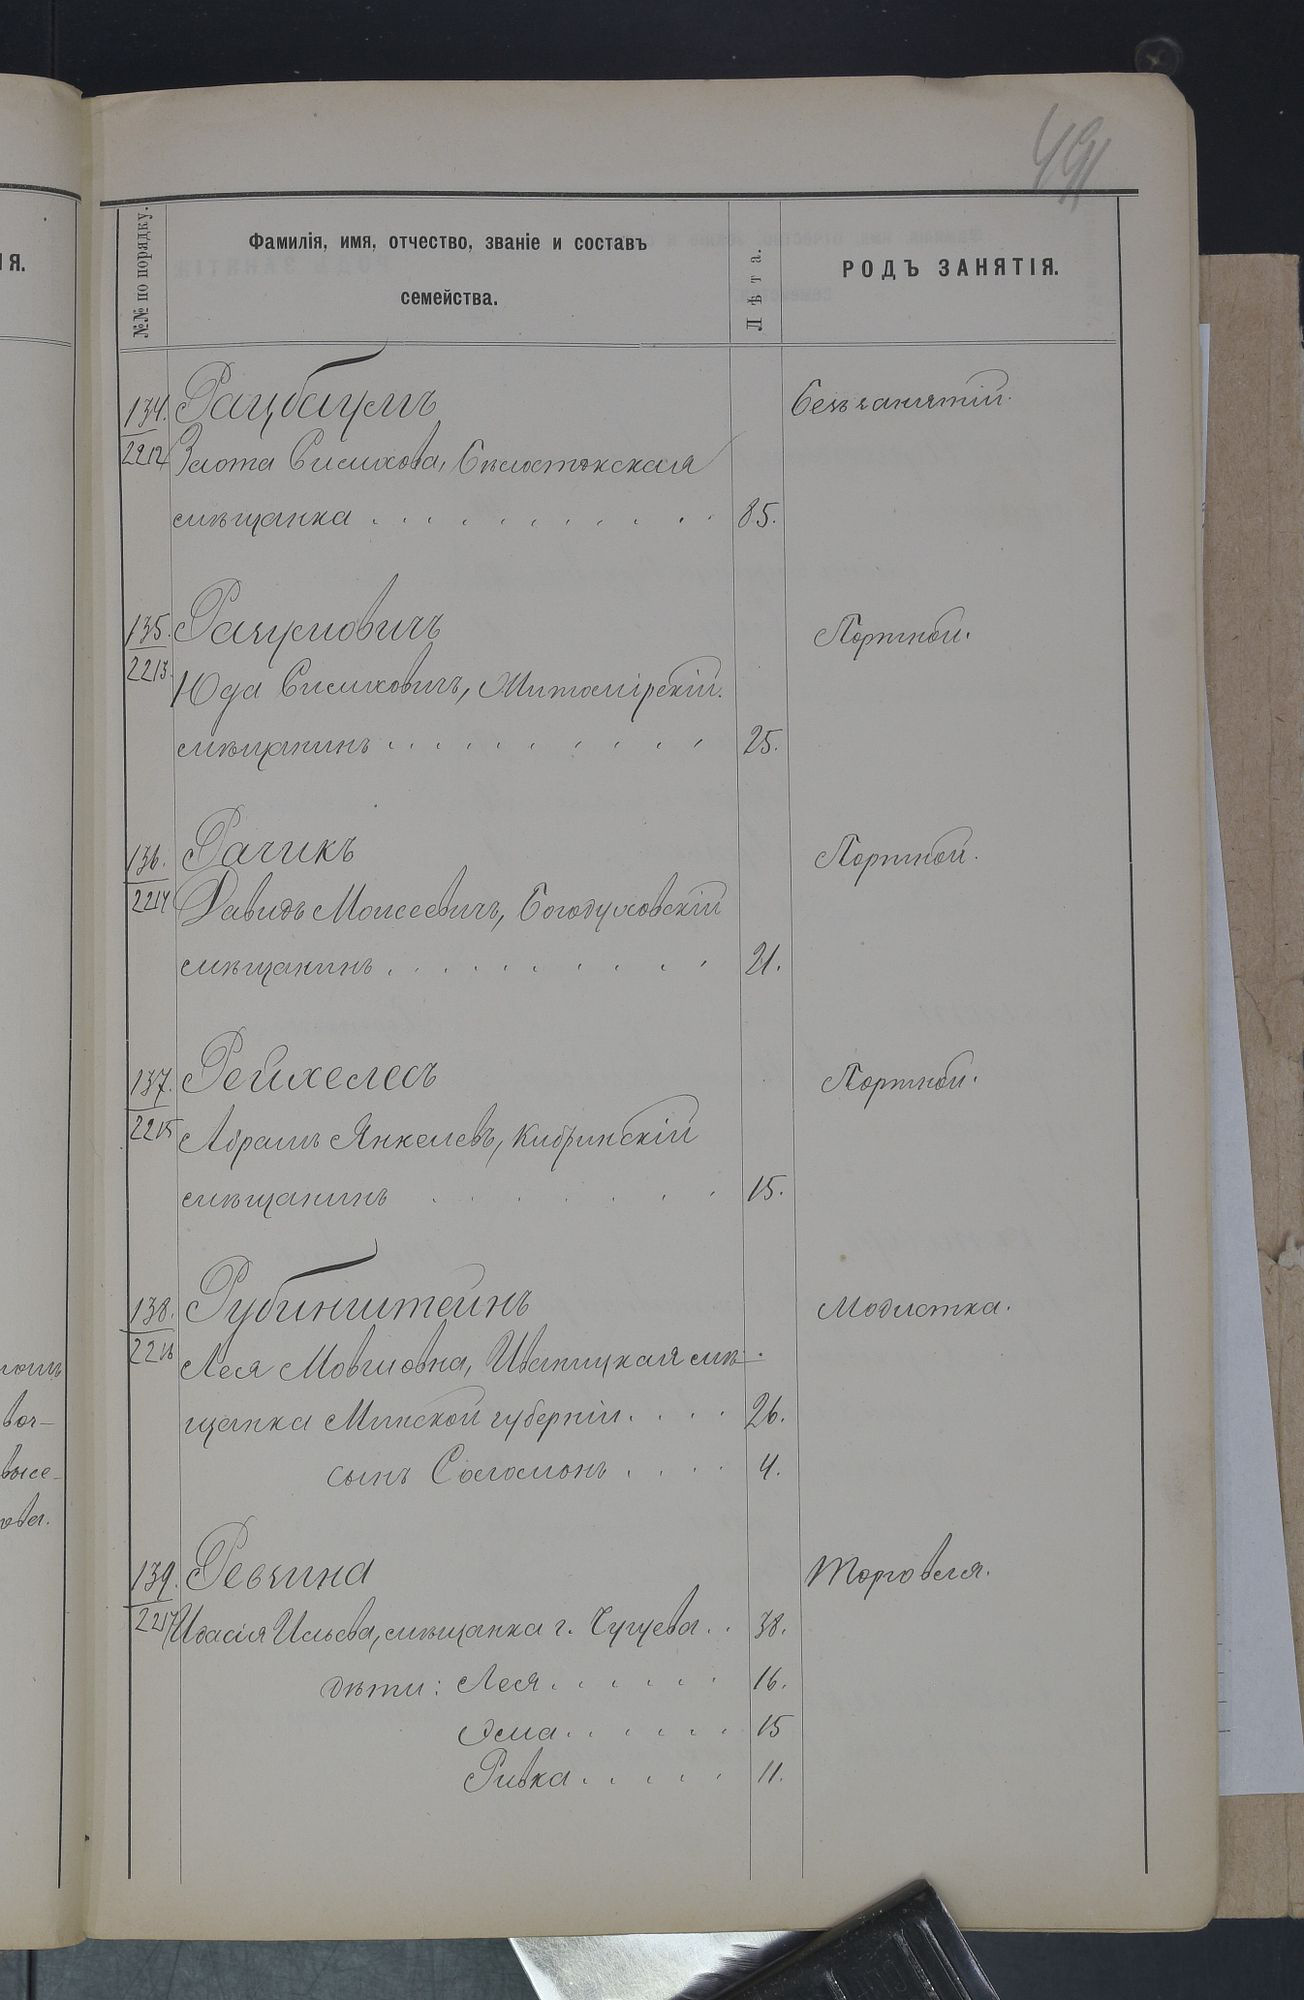 491
№№ по порядку.
Фамилія, имя, отчество, званіе и составъ
семейства.
Лѣта.
РОДЪ ЗАНЯТІЯ.
ІЯ.
134. Рацбаумъ Безъ занятій.
2212 Злота Симхова, Бѣлостокская
мѣщанка . . . . . . . . . . . 85.
135. Рахумовичъ Портной.
2213. Юда Симховичъ, Житомірскій
мѣщанинъ . . . . . . . . . . 25.
136. Рачикъ Портной.
2214 Давидъ Моисеевичъ, Богодуховскій
мѣщанинъ . . . . . . . . . . 21.
137. Рейхелесъ Портной.
2215 Абрамъ Янкелевъ, Кобринскій
мѣщанинъ . . . . . . . . 15.
138. Рубинштейнъ Модистка.
2216 Лея Мовшовна, мѣ-
щанка Минской губерніи . . . . 26.
сынъ Соломонъ . . . . 4.
139. Ревзина Торговля.
2217 Ильева, мѣщанка г. Чугуева . . 38.
дѣти: Лея . . . . . . 16.
Эма . . . . . . 15
Ривка . . . . . 11.